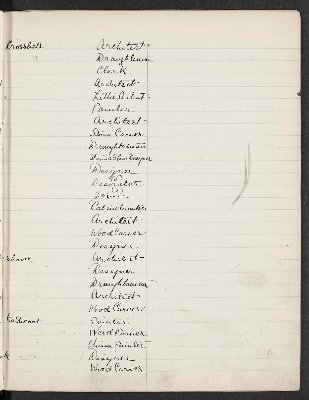 Architect
Draughtsman
Clerk
Architect
Litho. Artist
Painter
Architect
Stone Carver
Draughtsman
Stained Glass Designer
Designer
Decorator
Cabinetmaker
Architect
Wood Carver
Designer
Architect
Designer
Draughtsman
Architect
Wood Carver
Painter
Wood Carver
China Painter
Designer
Wood Carver